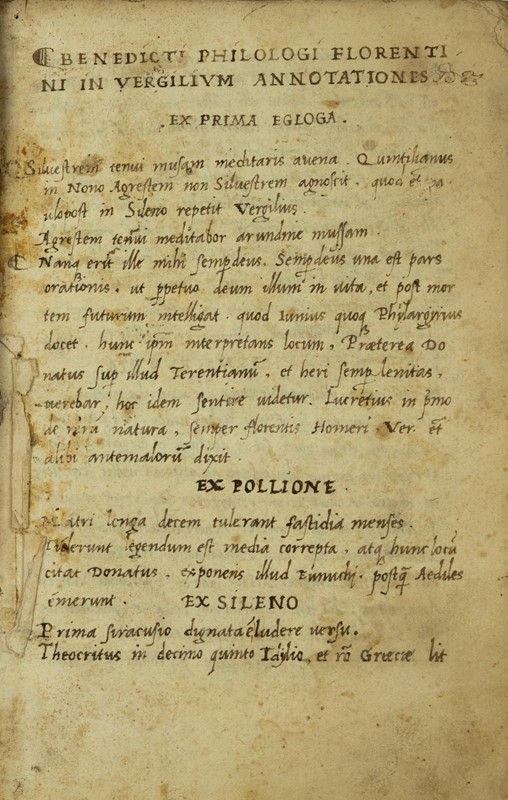 BENEDICTI PHILOLOGI FLORENTI
NI IN VERGILIVM ANNOTATIONES
.EX PRIMA EGLOGA.
Siluestrem tenui musam meditaris auena. Quintilianus
in Nono Agrestem non Siluestrem agnoscit. quod et pa
ulopost in Sileno repetit Vergilius.
Agrestem tenui meditabor arundine mussam.
Nanq erit ille mihi semp deus. Semp deus una est pars
orationis. ut ppetuo deum illum in vita, et post mor
tem futurum intelligat. quod Iunius quoq Phylargirius
docet. hunc ipm interpretans locum. Præterea Do
natus sup illud Terentianū, et heri semp lenitas,
uerebar, hoc idem sentire uidetur. Lucretius in pmo
de natura, semper florentis Homeri. Ver. et
alibi antemalorū dixit.
EX POLLIONE.
Matri longa decem tulerant fastidia menses.
Tulerunt legendum est media correpta. atq hunc locū
citat Donatus. exponens illud Eunuchi. postq̄ Aediles
emerunt. EX SILENO
Prima siracusio dignata ē ludere versu.
Theocritus in decimo quinto Idylio, et rō Græcæ lit